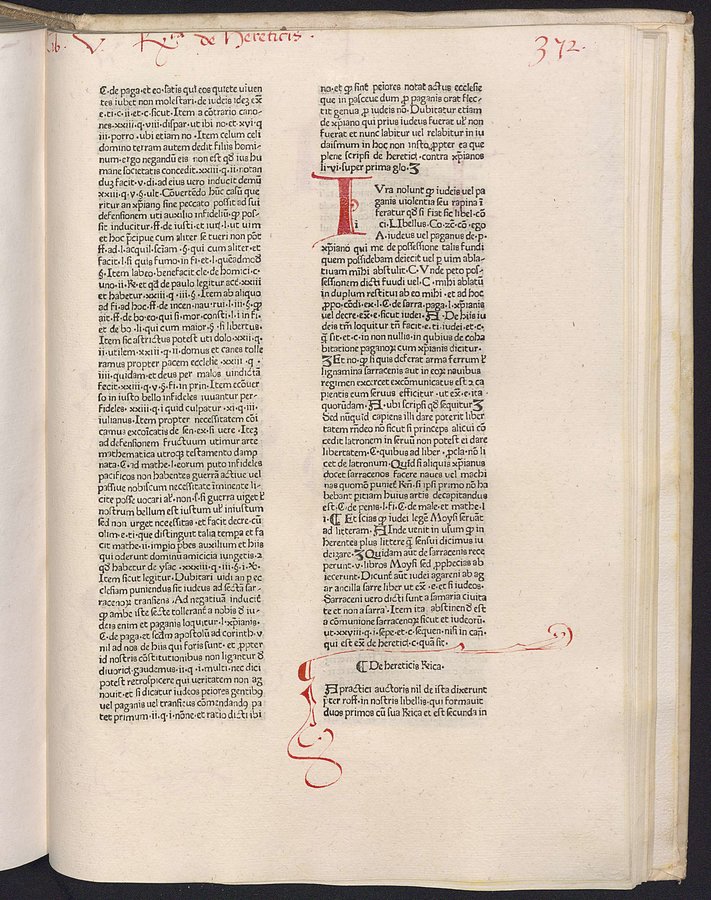 V. R^ca de hereticis.
372.
C·de paga·et eo·satis qui eos quiete viuen
tes iubet non molestari·de iudeis idez ex̄
e·ti·c·ii·et·c·sicut·Item a cōtrario cano
nes·xxiii·q·viii·dispar·ut ibi no·et·xvi·q
iii·porro·ubi etiam no·Item celum celi
domino terram autem dedit filiis homi
num·ergo negandū eis non est qđ ius hu
mane societatis concedit·xxiii·q·ii·notan
duʒ facit·v·di·ad eius vero inducit demū
xxiii·q·v·§·ule·Cōuertēdo hūc casū que
ritur an xp̄iang sine peccato possit ad sui
defensionem uti auxilio infideliū·qꝫ pos
sit inducitur·ff·de iusti·et iur·l·ut uim
et hoc p̄cipue cum aliter se tueri non pōt
ff·ad·l·acquil·sciam·§·qui cum aliter·et
facit·l·si quis fumo·in fi·et·l·queadmođ
§·Item labeo·benefacit cle·de homici·c·
vno·ii·Rē·et qđ de paulo legitur acē·xxiii
et habetur·xxiii·q·iii·§·Item ab aliquo
ad fi·ad hoc·ff·de incen·nau·rui·l·iii·§·ꝓ
ait·ff·de bo·eo qui si·mor·consti·l·i in fi·
et de bo·li·qui cum maior·§·si libertus·
Item sic astrictus potest uti dolo·xxii·q·
ii·utilem·xxiii·q·ii·domus et canes tolle
ramus propter pacem ecclesie·xxiii·q·
iiii·quidam·et deus per malos uindictā
fecit·xxiii·q·v·§·fi·in prin·Item ecōuer
so in iusto bello infideles iuuantur per
fideles·xxiii·q·i quid culpatur·xi·q·iii·
iulianus·Item propter necessitatem cōi
camus excōicatis de sen·ex·si uere·Iteʒ
ad defensionem fructuum utimur arte
mathematica utroqꝫ testamento damp
nata·C·ad mathe·l·eorum puto infideles
pacificos non habentes guerrā actiue uel
passiue nobiscum necessitate iminente li
cite posse uocari al̄·non·l·si guerra uiget ƚ
nostrum bellum est iustum uƚ iniustum
sed non urget necessitas·et facit decre·cū
olim·e·ti·que distinguit talia tempa et fa
cit mathe·ii·impio p̄bes auxilium et hiis
qui oderunt dominū amicicia iungetis·2
qđ habetur de ysac·xxxiii·q·iii·§·i·℣·
Item sicut legitur·Dubitari uidi an p̄ ec
clesiam puniendus sit iudeus ad sectā sar
racenoꝝ transiens·Ad negatiuā induciť
qꝫ ambe iste secte tollerant̄ a nobis đ iu-
deis enim et paganis loquitur·l·xp̄ianis·
C·de paga·et scđm apostolū ad corinth·v·
nil ad nos de hiis qui foris sunt·et ꝓpter
id nostris cōstitutionibus non ligantur đ
diuorcii·gaudemus·ii·q·i·multi·nec dici
potest retrospicere qui ueritatem non ag
nouit·et si dicatur iudeos peiores gentibꝫ
uel paganis uel transitus cōmendandꝫ pa
tet primum·ii·q·i·nōne·et ratio dicti ibi
no·et qꝫ sint peiores notat actus ecclesie
que in pasceue dum ꝓ paganis orat flec-
tit genua ꝓ iudeis nō·Dubitatur etiam
de xp̄iano qui prius iudeus fuerat uƚ non
fuerat et nunc labitur uel relabitur in iu
daismum in hoc non insto·ꝓpter ea que
plene scripsi de heretici·contra xp̄ianos
li·vi·super prima glo·
Vra nolunt qꝫ iudeis uel pa
ganis uiolentia seu rapina ī
feratur qđ si fiat sic libel-cō
ci·LIbellus·Co·zē·cō·ego
A·iudeus uel paganus de·p·
xp̄iano qui me de possessione talis fundi
quem possidebam deiecit uel ꝑ uim abla-
tiuam mihi abstulit·C·Vnde peto pos-
sessionem dicti fundi uel·C·mihi ablatū
in duplum restitui ab eo mihi·et ad hoc
ꝓpo·cōdi·ex·l·C·de sarra·paga·l·xp̄ianis
uel decre·ex̄·e·sicut iudei·A·De hiis iu
deis tm̄ loquitur tn̄ facit·e·ti·iudei·et·c·
q̄ sit·et·c·in non nullis·in quibus de coha
bitatione paganoꝝ cum xp̄ianis dicitur·
Et no·qꝫ si quis deferat arma ferrum ƚ
lignamina sarracenis aut in eoꝝ nauibus
regimen exerceat excōmunicatus est 2 ca
pientis eum seruus efficitur·ut ex̄·e·ita
quorūdam·A·ubi scripsi qđ sequitur
Sed nūquid capiens illi dare poterit liber
tatem r̄ndeo nō sicut si princeps alicui cō
cedit latronem in seruū non potest ei dare
libertatem·C·quibus ad liber·ꝓcla·nō li
cet de latronum·Quid si aliquis xp̄ianus
docet sarracenos facere naues uel machi
nas quomō punieƚ Rn̄·si ipsi primo nō ha
bebant pitiam huius artis decapitandus
est·C·de penis·l·fi·C·de male·et mathe·l·
i·¶ Et scias qꝫ iudei legē Moysi seruāt
ad litteram·A·Inde uenit in usum qꝫ in
herentes plus littere q̄ sensui dicimus iu
deizare·Quidam aūt de sarracenis rece
perunt·v·libros Moysi sed ꝓphecias ab
iecerunt·Dicunt̄ aūt iudei agareni ab ag
ar ancilla sarre liber ut ex̄·e·et si iudeos·
Sarraceni uero dicti sunt a samaria ciuita
te et non a sarra·Item ita abstinenđ est
a cōmunione sarracenoꝝ sicut et iudeorū·
ut·xxviii·q·i·sepe·et·c·sequen·nisi in caň·
qui est ex̄·de heretici·c·qua sit·
¶ De hereticis Rica·
A practici auctoris nil de ista dixerunt
p̄ter roff·in nostris libellis·qui formauit
duos primos cū sua Rica et est secunda in